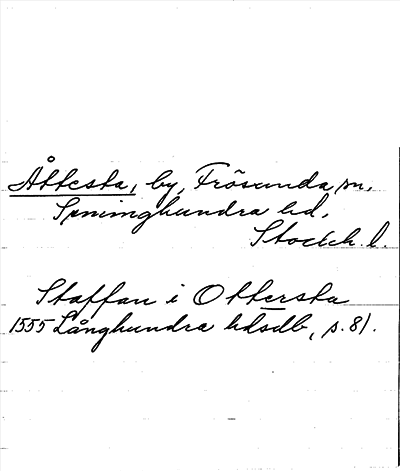 Åttesta, by, Frösunda sn,
Seminghundra hd,
Stockh. l.
Staffan i Ottersta
1555 Långhundra hdsdb, s. 81.